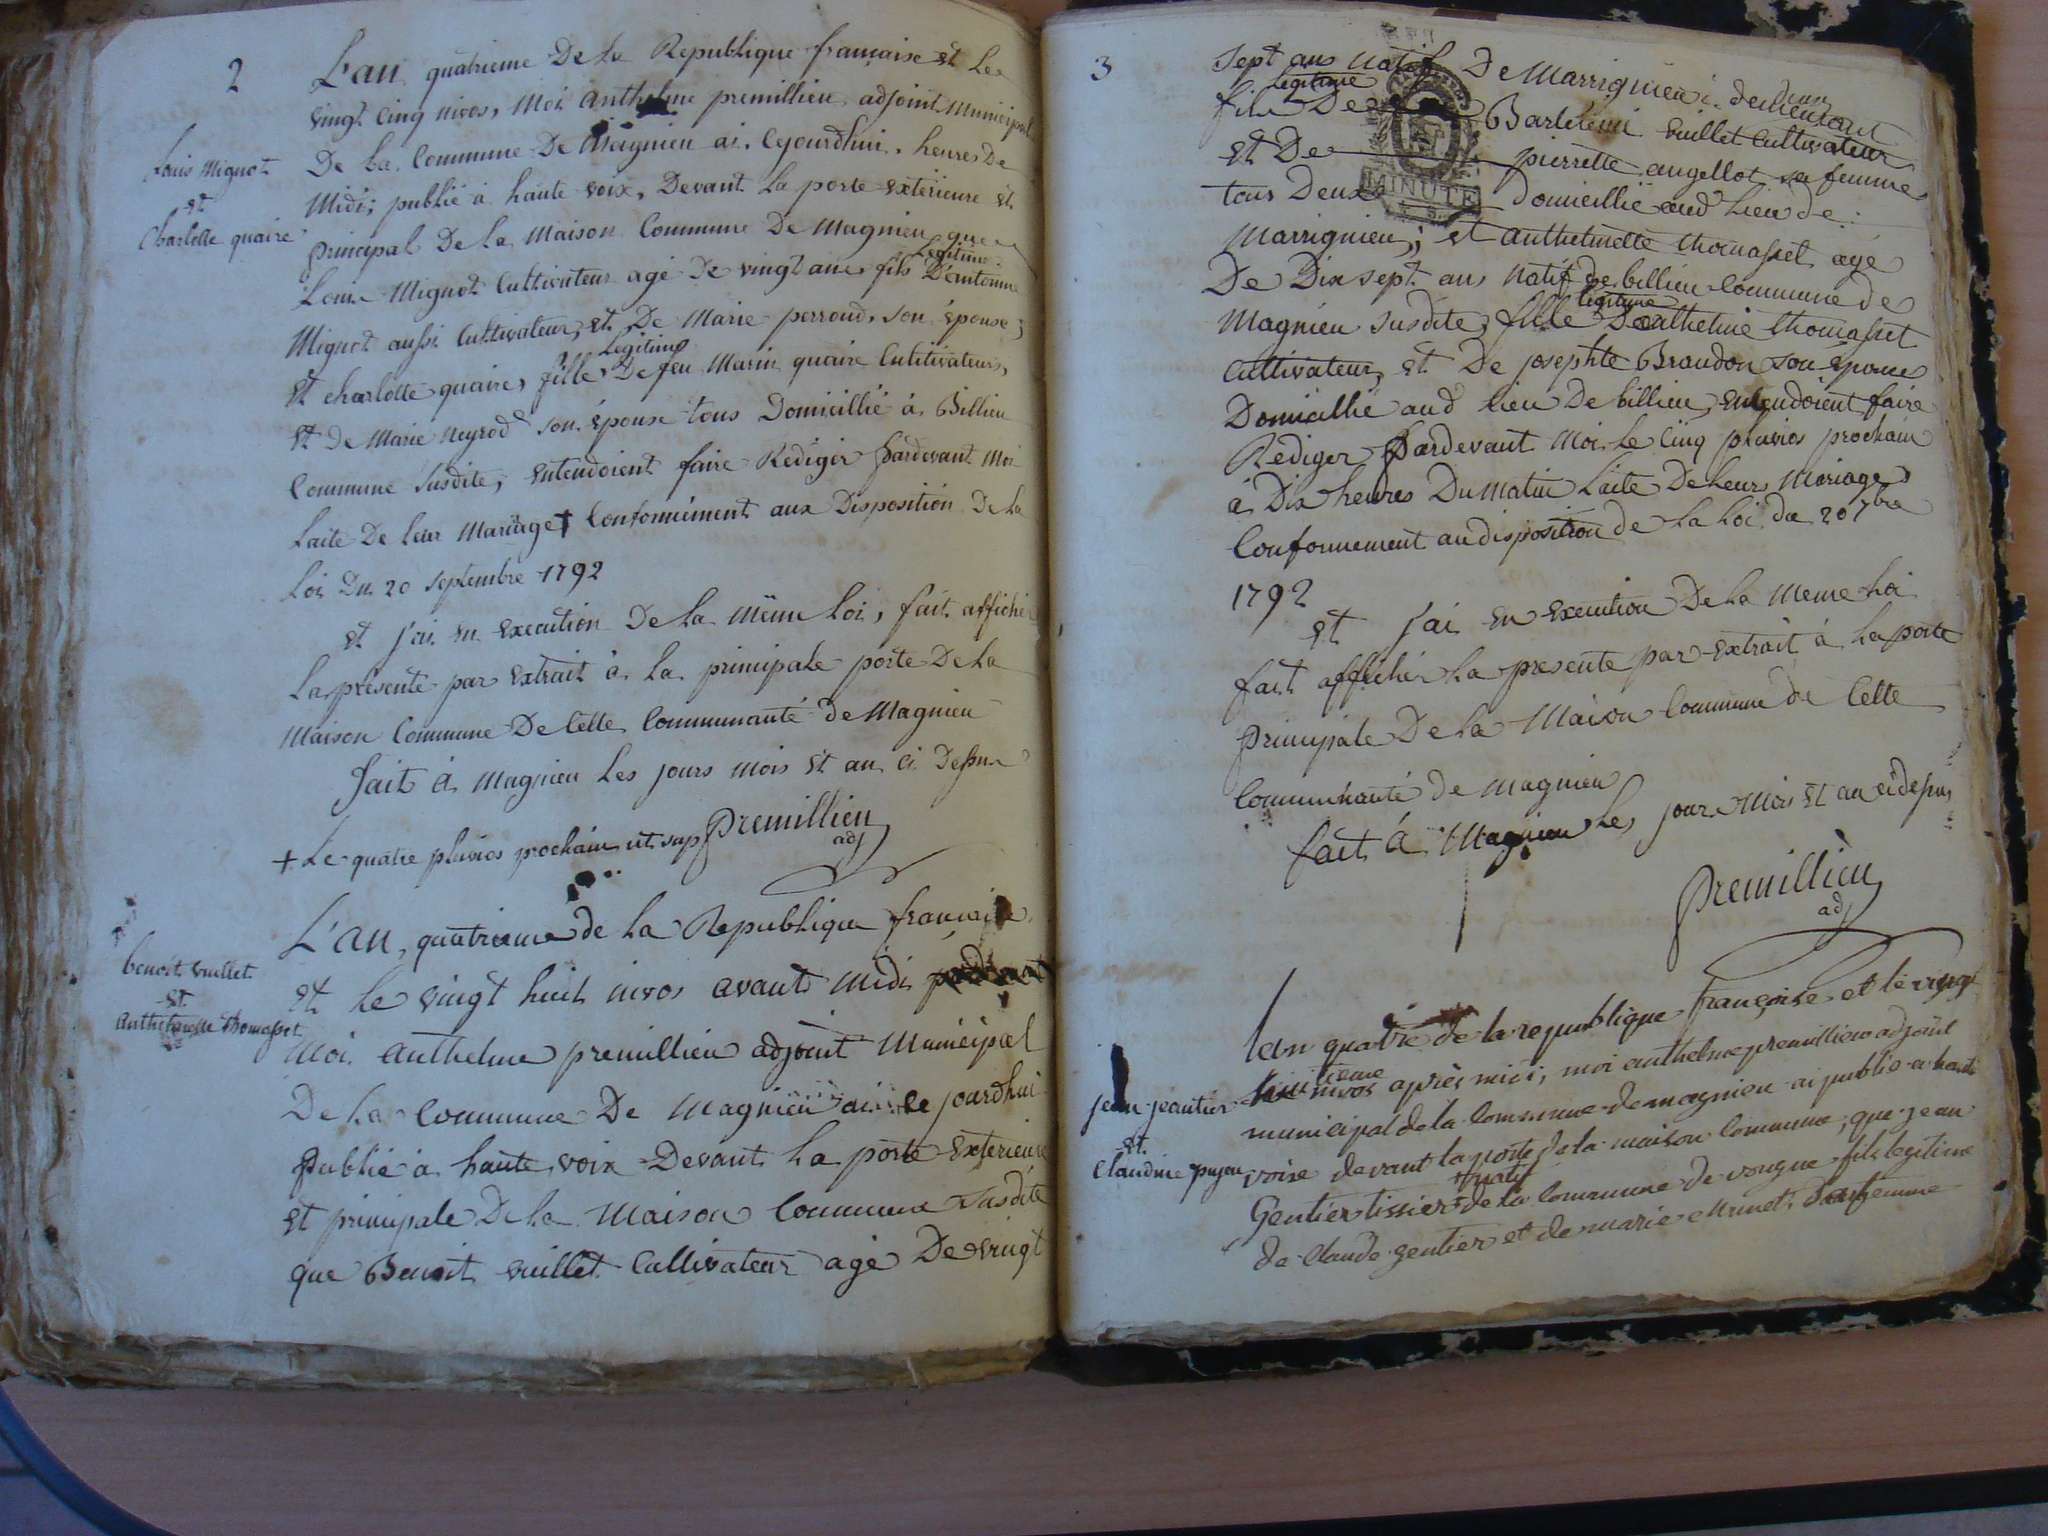 2
L'an quatrieme De la Republique francaise et Le
vingt cinq nivos, Moi anthelme premillieu adjoint Municipal
Louis Mignot
et
Charlotte quaire
De La Commune De Magnieu ai Cejourdhui, heure De
Midi; publié à haute voix, Devant La porte extérieure et
principal De La Maison Commune De Magnieu que
Legitime
Louis Mignot Cultivateur agé De vingt ans fils D'antoinne
Mignot aussi Cultivateur, et De Marie perroud, son épouse;
Legitime
et charlotte quaire, fille De feu Marin quaire Cultivateurs,
et De Marie neyrod son épouse tous Domicillié à Billieu
Commune susdite, entendoient faire Rediger pardevant Moi
Lacte De Leur Mariage + Conformément aux Disposition De La
Loi Du 20 septembre 1792
et j'ai en execution De La même Loi, fait affiché
La présente par extrait à La principale porte De La
Maison Commune De Cette Communauté de Magnieu
fait à Magnieu Les jours mois et an ci Dessus
+ Le quatre pluvios prochain ut sup premillieu
adj
benoit vuillet
et
anthelmette thomasset
L'an, quatrieme de La Republique francaise
et Le vingt huit nivos avant Midi
Moi anthelme premillieu adjoint Municipal
De La Commune De Magnieu ai ce jourdhui
publié à haute voix Devant La porte exterieure
et principale De La Maison Commune susdite
que Benoit vuillet Cultivateur agé De vingt
3
sept ans natif De Marrignieu
Legitime
fils De Barthelemi vuillet Cultivateur
et De pierrette angellot sa femme
MINUTE
tous Deux Domicillié aud Lieu de
Marrignieu; et anthelmette thomasset agé
De Dix sept ans natif de billieu Commune de
Legitime
Magnieu susdite, fille D'anthelme thomasset
Cultivateur, et De josephte Brandon son épouse
Domicillié aud Lieu De billieu, entendoient faire
Rediger pardevant Moi Le Cinq pluvios prochain
à Dix heures Du Matin Lacte De Leur Mariage
Conformement au disposition de La Loi du 20 7bre
1792
et j'ai en execution De La Meme Loi
fait afficher La presente par extrait à La porte
principale De La Maison Commune de Cette
Communauté de Magnieu
fait à Magnieu Les jour Mois et an ci dessus
premillieu
adj
jean jeantier
et
Claudine pugeu
lan quatre de la republique françoise et le vingt
huitieme nivos après midi, moi anthelme premillieu adjoint
municipal de la commune de magnieu ai publie a haute
voixe devant la porte de la maison commune, que jean
+ natif
Gentier tissier de la commune de vongne fils legitime
de Claude gentier et de marie femme